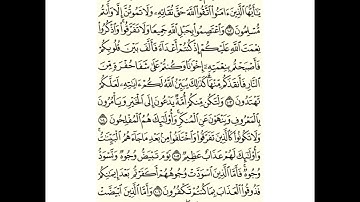 يَٰٓأَيُّهَا ٱلَّذِينَ ءَامَنُوا۟ ٱتَّقُوا۟ ٱللَّهَ حَقَّ تُقَاتِهِۦ وَلَا تَمُوتُنَّ إِلَّا وَأَنتُم
مُّسْلِمُونَ ١٠٢ وَٱعْتَصِمُوا۟ بِحَبْلِ ٱللَّهِ جَمِيعًا وَلَا تَفَرَّقُوا۟ وَٱذْكُرُوا۟
نِعْمَتَ ٱللَّهِ عَلَيْكُمْ إِذْ كُنتُمْ أَعْدَآءً فَأَلَّفَ بَيْنَ قُلُوبِكُمْ
فَأَصْبَحْتُم بِنِعْمَتِهِۦٓ إِخْوَٰنًا وَكُنتُمْ عَلَىٰ شَفَا حُفْرَةٍ مِّنَ
ٱلنَّارِ فَأَنقَذَكُم مِّنْهَا كَذَٰلِكَ يُبَيِّنُ ٱللَّهُ لَكُمْ ءَايَٰتِهِۦ لَعَلَّكُمْ
تَهْتَدُونَ ١٠٣ وَلْتَكُن مِّنكُمْ أُمَّةٌ يَدْعُونَ إِلَى ٱلْخَيْرِ وَيَأْمُرُونَ
بِٱلْمَعْرُوفِ وَيَنْهَوْنَ عَنِ ٱلْمُنكَرِ وَأُو۟لَٰٓئِكَ هُمُ ٱلْمُفْلِحُونَ ١٠٤
وَلَا تَكُونُوا۟ كَٱلَّذِينَ تَفَرَّقُوا۟ وَٱخْتَلَفُوا۟ مِنۢ بَعْدِ مَا جَآءَهُمُ ٱلْبَيِّنَٰتُ
وَأُو۟لَٰٓئِكَ لَهُمْ عَذَابٌ عَظِيمٌ ١٠٥ يَوْمَ تَبْيَضُّ وُجُوهٌ وَتَسْوَدُّ
وُجُوهٌ فَأَمَّا ٱلَّذِينَ ٱسْوَدَّتْ وُجُوهُهُمْ أَكَفَرْتُم بَعْدَ إِيمَٰنِكُمْ
فَذُوقُوا۟ ٱلْعَذَابَ بِمَا كُنتُمْ تَكْفُرُونَ ١٠٦ وَأَمَّا ٱلَّذِينَ ٱبْيَضَّتْ